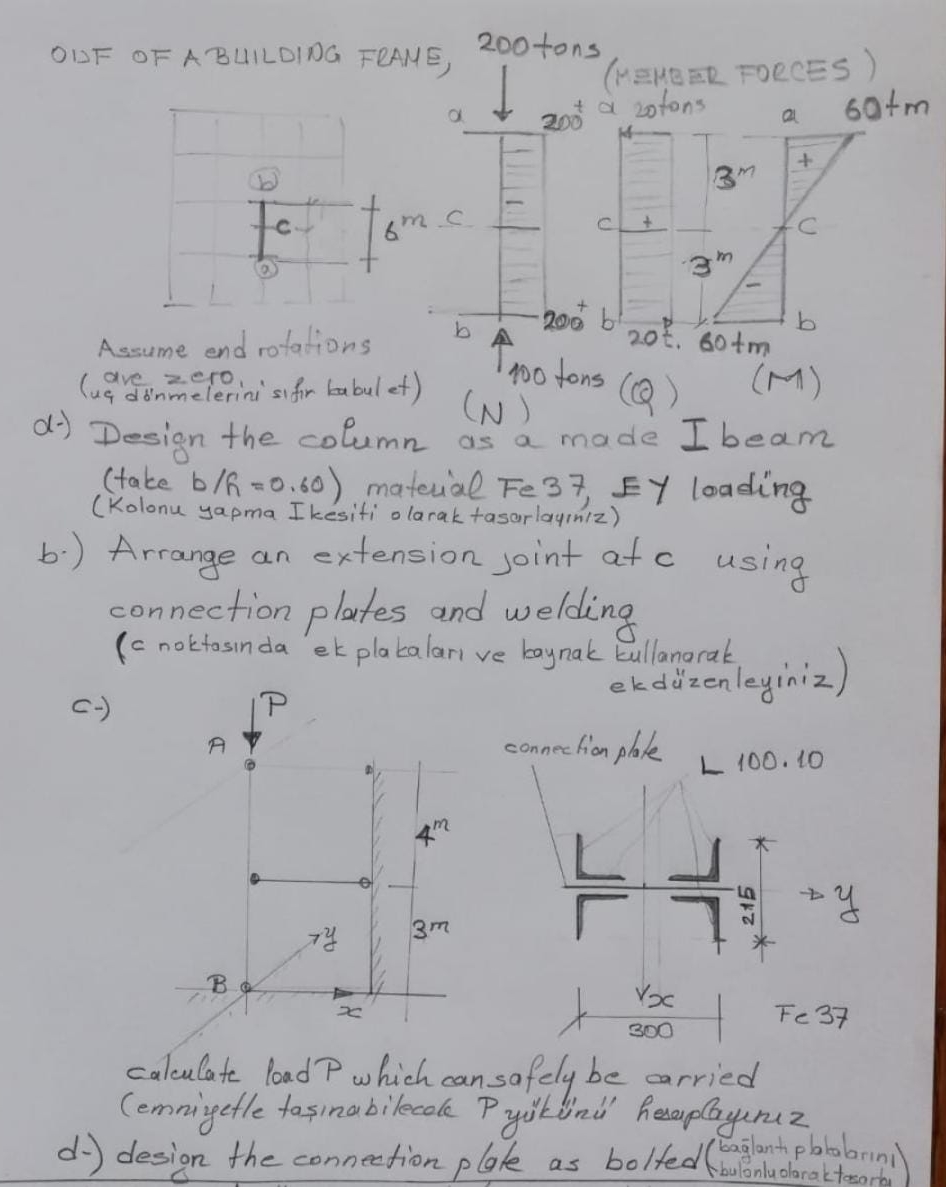 OUF OF A BUILDING FRAME,
200 tons
(MEMBER FORCES)
a 200t a 20 tons a 60tm
+
b
3m
c 6m c - c + c
a 3m -
b 200t b 20t. 60tm b
100 tons (Q) (M)
(N)
Assume end rotations
are zero.
(uç dönmelerini sıfır kabul et)
a-) Design the column as a made I beam
(take b/h = 0.60) material Fe 37, EY loading
(Kolonu yapma I kesiti olarak tasarlayınız)
b-) Arrange an extension joint at c using
connection plates and welding
(c noktasında ek plakaları ve kaynak kullanarak
ek düzenleyiniz)
c-)
P
A
connection plate L 100.10
4m
3m
215
y
y
B
x
x
300
Fe 37
calculate load P which can safely be carried
(emniyetle taşınabilecek P yükünü hesaplayınız
d-) design the connection plate as bolted (bağlantı plakalarını)
bulonlu olarak tasarla